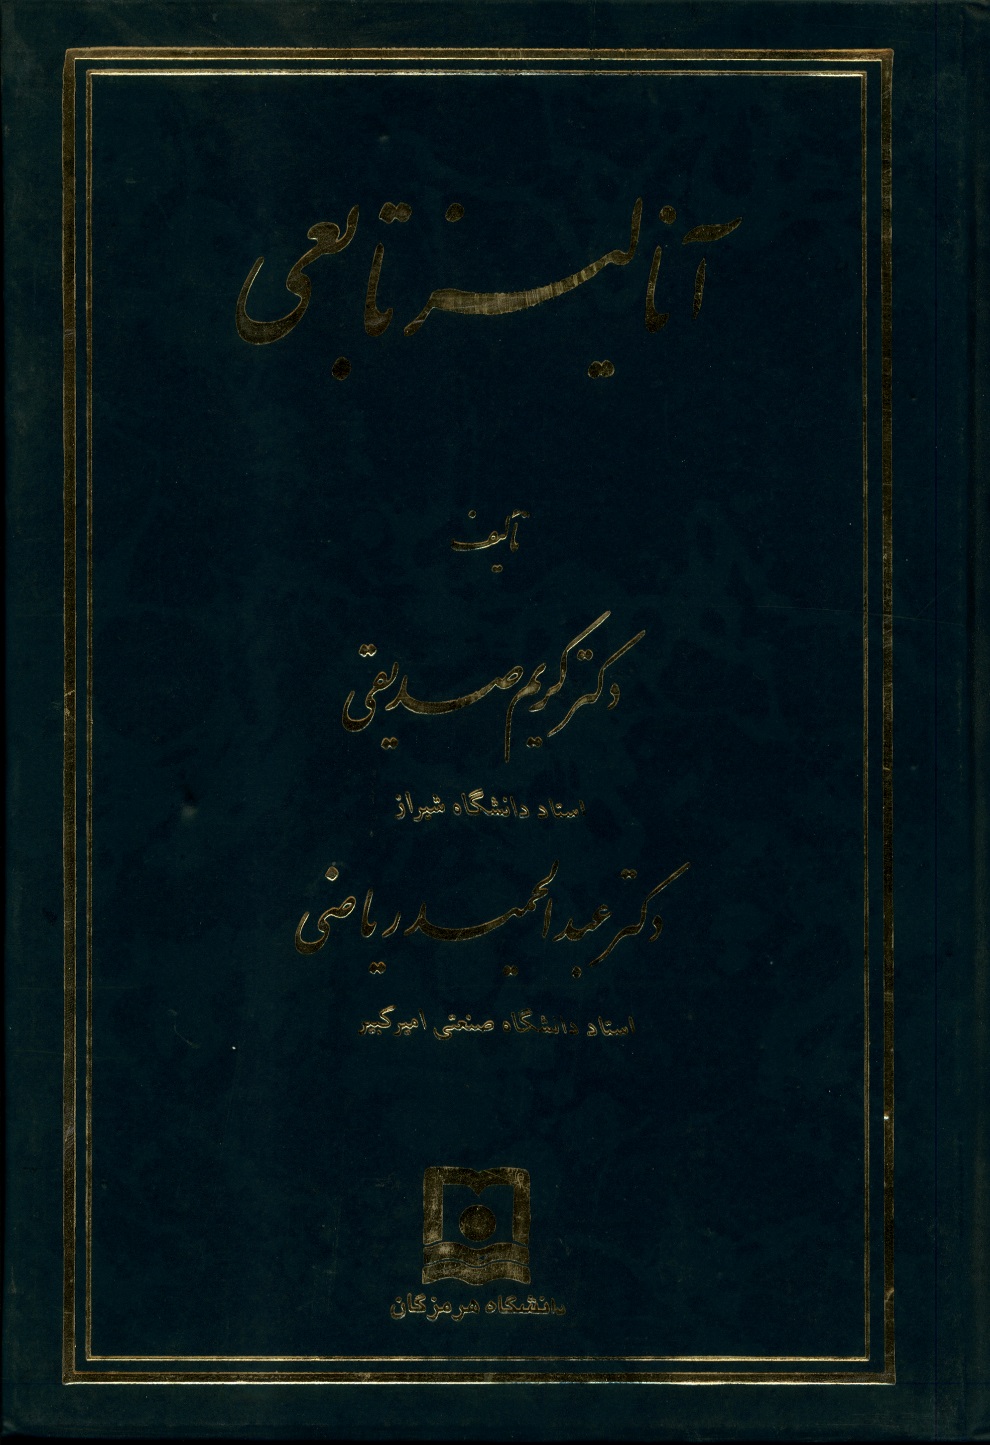 آنالیز تابعی
تألیف
دکتر کریم صدیقی
استاد دانشگاه شیراز
دکتر عبدالحمید ریاضی
استاد دانشگاه صنعتی امیرکبیر
دانشگاه هرمزگان